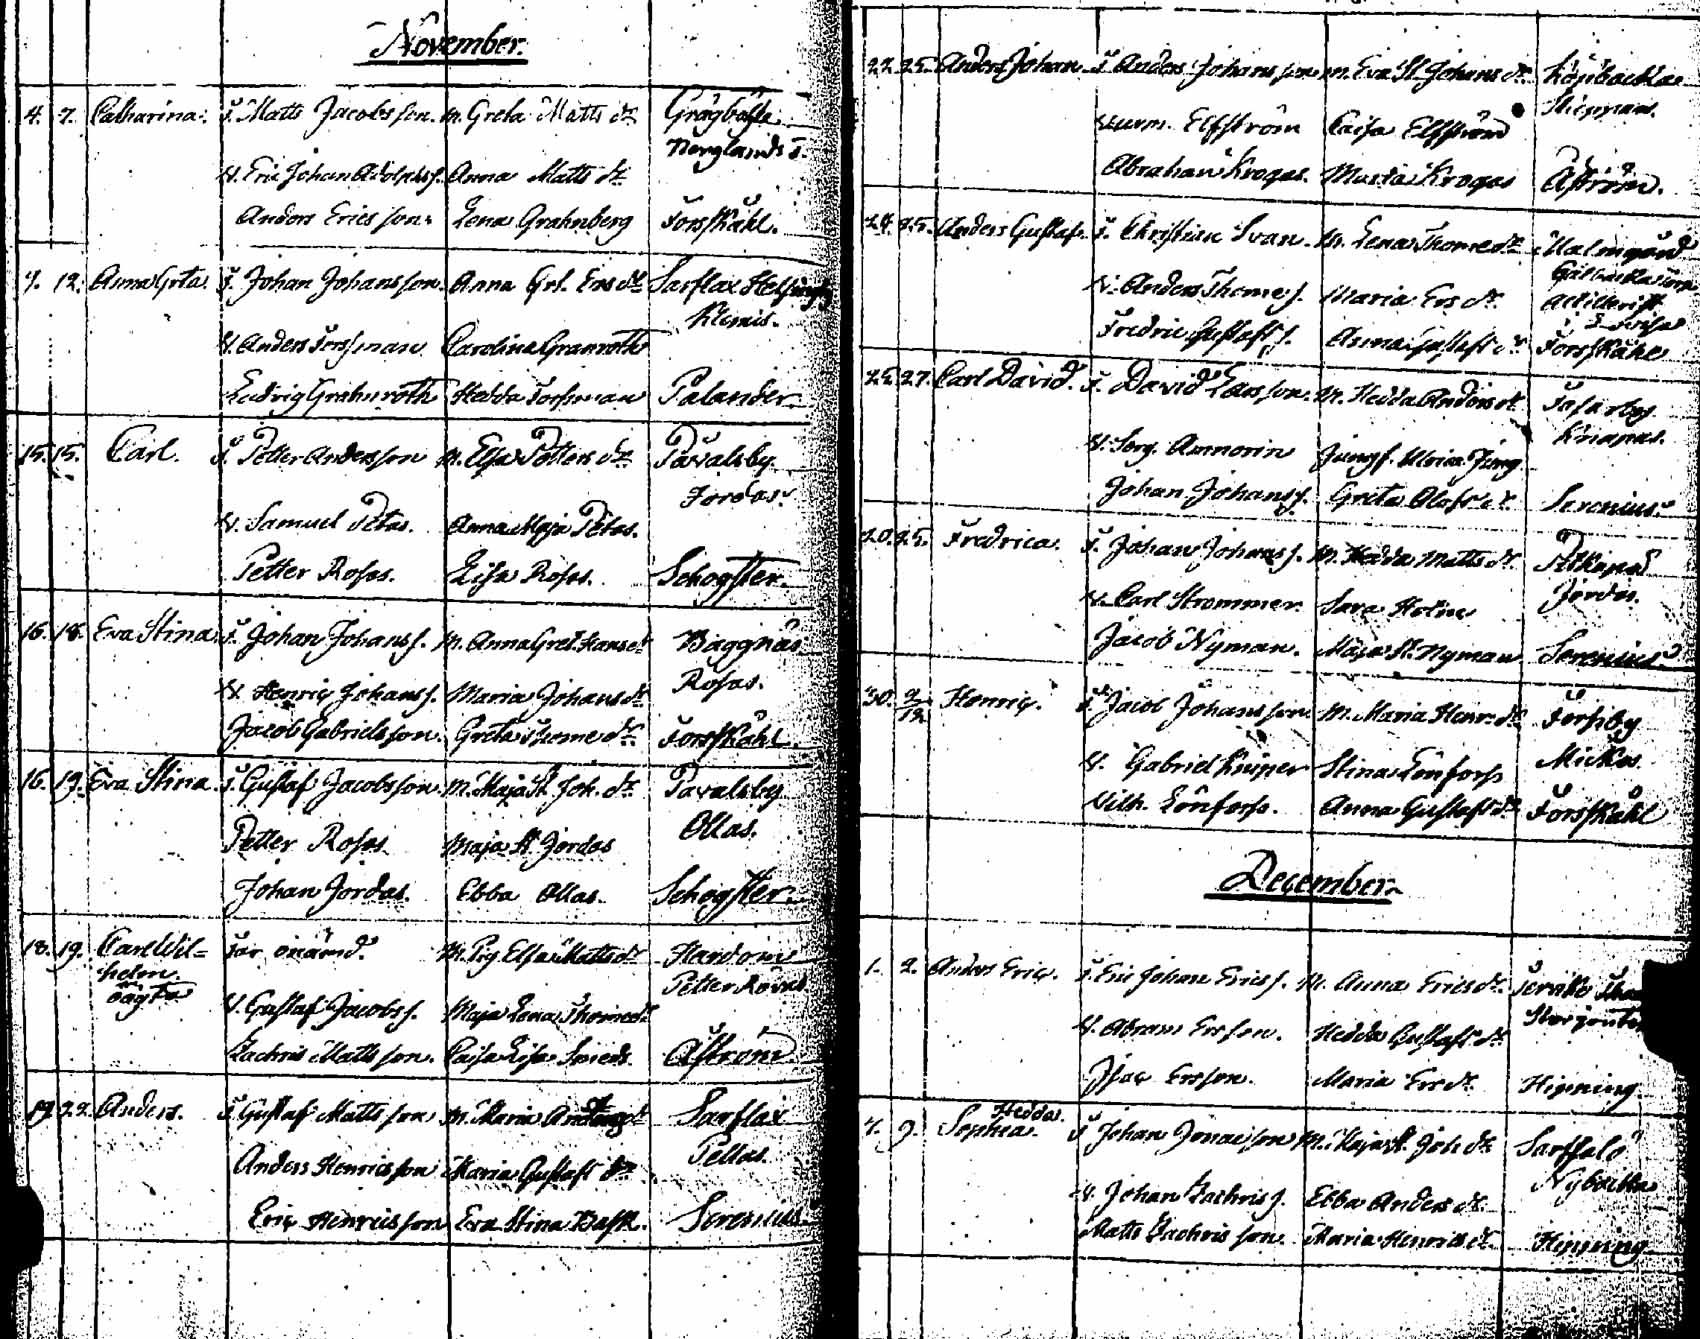 November.
4. 7. Catharina. F. Matts Jacobsson. M. Greta Matts dr Gråg böhle
Berglands T.
V. Eric Johan Adolphs s. Anna Matts dr
Anders Ericsson. Lena Grahnberg Forsskåhl.
7. 12. Anna Grta F. Johan Johansson. Anna Grt. Ers dr Sarflax Helsing
Klemis.
V. Anders Forssman Carolina Granroth
Ludvig Grahnroth Hedda Forssman Palander.
15. 15. Carl. F. Petter Andersson M. Elsa Petters dr Påvalsby
Jordas.
V. Samuel Petas. Anna Maja Petas.
Petter Rosas. Lisa Rosas. Schogster.
16. 18. Eva Stina F. Johan Johans s. M. Anna Gret. Hans dr Baggnäs
Rosas.
V. Henriç Johans s. Maria Johans dr
Jacob Gabrielsson. Greta Thome dr Forsskåhl.
16. 19. Eva Stina F. Gustaf Jacobsson M. Maja St. Joh. dr Pavalsby
Ollas.
Petter Rosas Maja St. Jordas
Johan Jordas. Ebba Ollas. Schogster.
18. 19. Carl Wil= Far onämd. M. Pig. Elsa Matts dr Hardom
helm
oägta
Petter Röves
V. Gustaf Jacobs s. Maja Lena Thome dr
Zachris Mattsson. Caisa Lisa Smeds Åström
19. 22. Anders. F. Gustaf Mattsson M. Maria Sarflax
Pellas.
Anders Henricsson Maria Gustafs dr
Eriç Henricsson Eva Stina Bask. Serenius.
22. 25. Anders Johan F. Anders Johansson M. Eva St. Johans dr Köpbacka
Skeppars.
Elfström Caisa Elfström
Abraham Krogas. Maria Krogas Åström.
24. 25. Anders Gustaf. F. Christian Svan. M. Lena Thome dr Malmgård
V. Anders Thome s. Maria Ers dr
Lovisa
Fredric Gustafs s. Anna Gustafs dr Forsskåhl
25. 27. Carl David. F. David Larsson. M. Hedda Anders dr Fasarby
Knapas.
V. Serg. Ammorin Jungf. Ulrica Jung
Johan Johans s. Greta Olofs dr Serenius.
20. 25. Fredrica. F. Johan Johans s. M. Hedda Matts dr
Jordas.
V. Carl Strömmer Sara Holm
Jacob Nyman. Maja St. Nyman Serenius
30. 2/12 Henriç. F. Jacob Johansson M. Maria Henr. dr Forsby
Mickos.
V. Gabriel Kniper Stina Lönfors
Vilh. Lönfors. Anna Gustafs dr Forsskåhl
December.
1. 2. Anders Eriç. F. Eric Johan Erics s. M. Anna Erics dr
V. Abram Ersson. Hedda Gustafs dr
Isaç Ersson. Maria Ers dr Hipping
7. 9. Hedda
Sophia. F. Johan Jonasson M. Maja St. Joh dr Sarfsalö
Nybacka
V. Johan Zachris s. Ebba Anders dr
Matts Zachrisson Maria Henrics dr Hipping